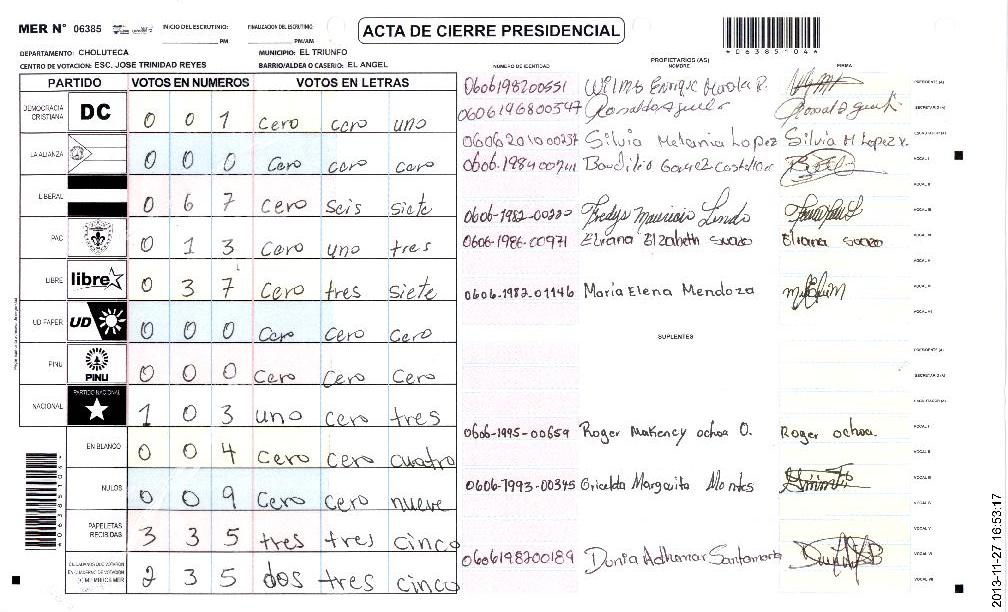 MER N° 06385 INICIO DEL ESCRUTINIO: PM FINALIZACION DEL ESCRUTINIO: PM/AM
ACTA DE CIERRE PRESIDENCIAL
*06385104*
DEPARTAMENTO: CHOLUTECA MUNICIPIO: EL TRIUNFO
CENTRO DE VOTACION: ESC. JOSE TRINIDAD REYES BARRIO/ALDEA O CASERIO: EL ANGEL
PARTIDO VOTOS EN NUMEROS VOTOS EN LETRAS
DEMOCRACIA CRISTIANA DC 0 0 1 cero cero uno
LA ALIANZA 0 0 0 cero cero cero
LIBERAL 0 6 7 cero seis siete
PAC 0 1 3 cero uno tres
LIBRE libre 0 3 7 cero tres siete
UD FAPER UD 0 0 0 cero cero cero
PINU PINU 0 0 0 cero cero cero
NACIONAL PARTIDO NACIONAL 1 0 3 uno cero tres
EN BLANCO 0 0 4 cero cero cuatro
NULOS 0 0 9 cero cero nueve
PAPELETAS RECIBIDAS 3 3 5 tres tres cinco
CIUDADANOS QUE VOTARON EN CUADERNO DE VOTACION 2 3 5 dos tres cinco
*06385104*
NUMERO DE IDENTIDAD PROPIETARIOS (AS) NOMBRE FIRMA
0606198200551 Wilmer Enrique PRESIDENTE (A)
0606196800347 Ronaldo Aguilar SECRETARIO (A)
0606201000237 Silvia Melania Lopez Silvia M Lopez v.
VOCAL I
VOCAL II
0606-1982-00220 Fredys Mauricio Lindo VOCAL III
0606-1986-00971 Eliana Elizabeth suazo Eliana suazo
VOCAL IV
0606-1982-01146 Maria Elena Mendoza VOCAL V
VOCAL VI
SUPLENTES
PRESIDENTE (A)
SECRETARIO (A)
0606-1995-00659 Roger Makency ochoa O. Roger ochoa. VOCAL I
VOCAL II
0606-1993-00345 Gricelda Margarita Montes VOCAL III
VOCAL IV
VOCAL V
0606198200189 Dunia Adhamar Santamaria VOCAL VI
VOCAL VII
2013-11-27 16:53:17